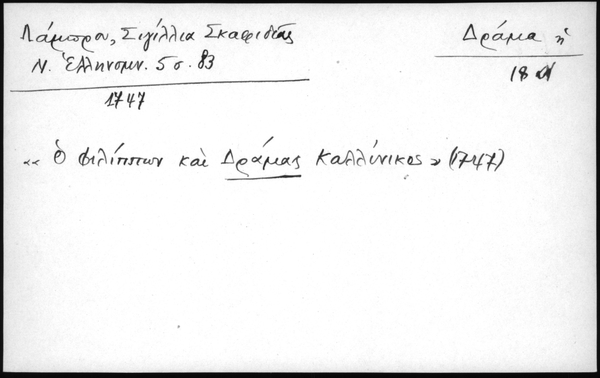 Λάμπρου, Σιγίλλια Σκαφιδιᾶς
Ν. Ἑλληνομν. 5 σ. 83
1747
Δράμα ἡ
18
«Ὁ Φιλίππων καὶ Δράμας Καλλίνικος» (1747)